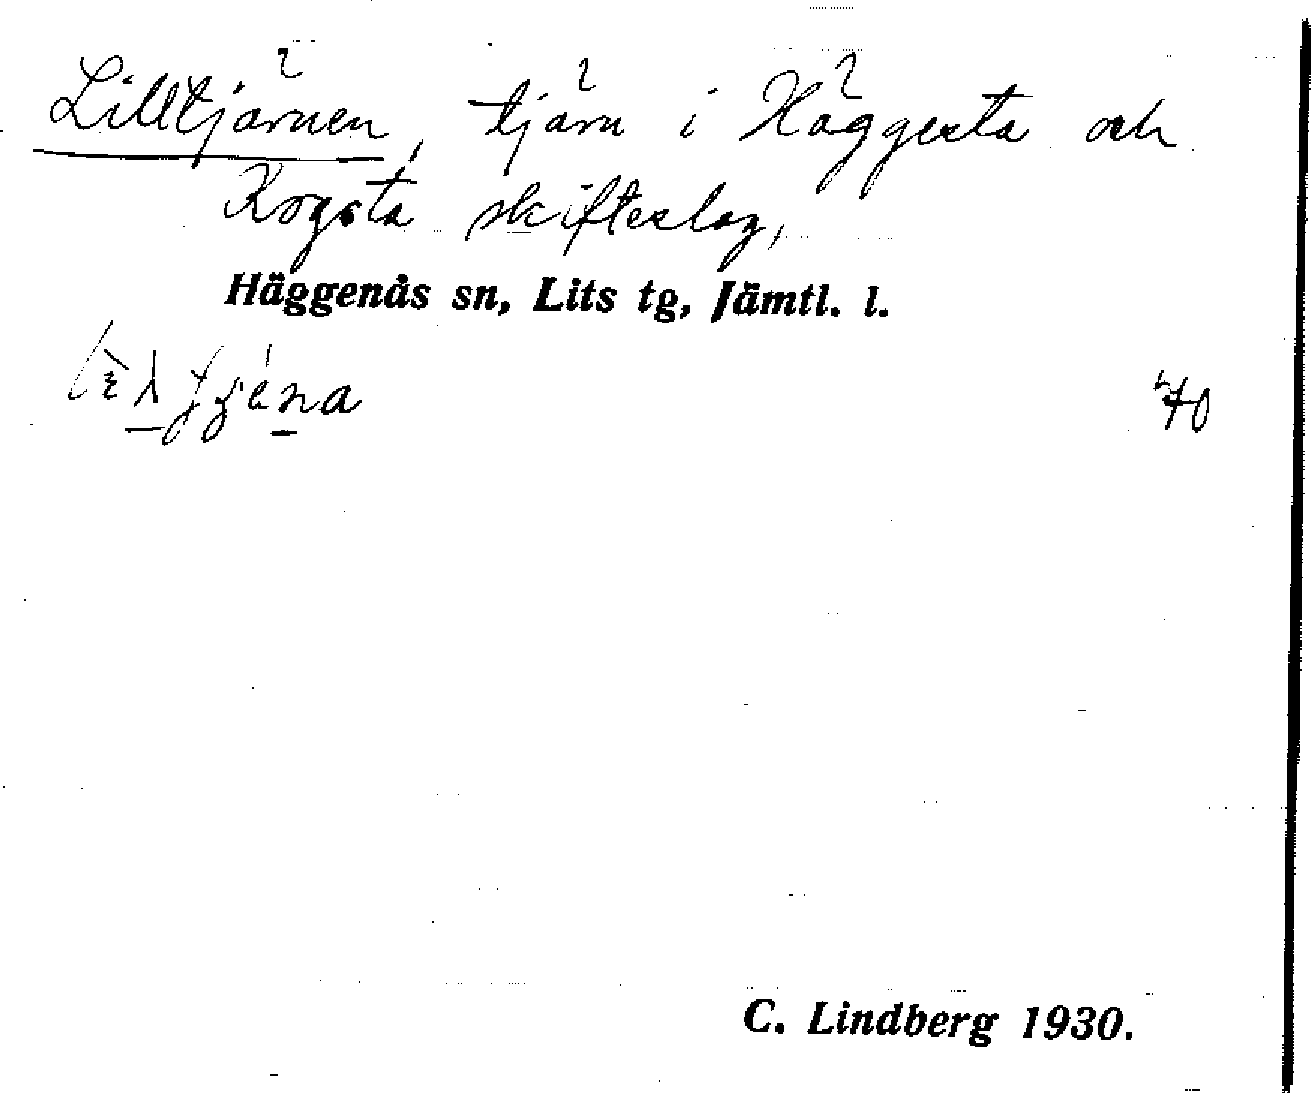 Lilltjärnen, tjärn i Häggesta och
Kogsta skifteslag,
Häggenås sn, Lits tg, Jämtl. l.
40
C. Lindberg 1930.